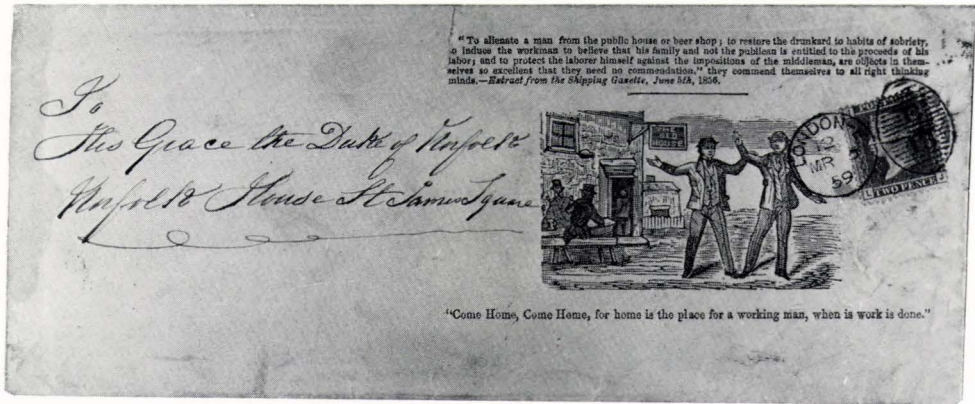 "To alienate a man from the public house or beer shop; to restore the drunkard to habits of sobriety,
o induce the workman to believe that his family and not the publican is entitled to the proceeds of his
labor; and to protect the laborer himself against the impositions of the middleman, are objects in them-
selves so excellent that they need no commendation," they commend themselves to all right thinking
minds.—Extract from the Shipping Gazette, June 5th, 1856.
To
His Grace the Duke of Norfolk
Norfolk House St James Square
LONDON
12
MR
59
TWO PENCE
"Come Home, Come Home, for home is the place for a working man, when is work is done."